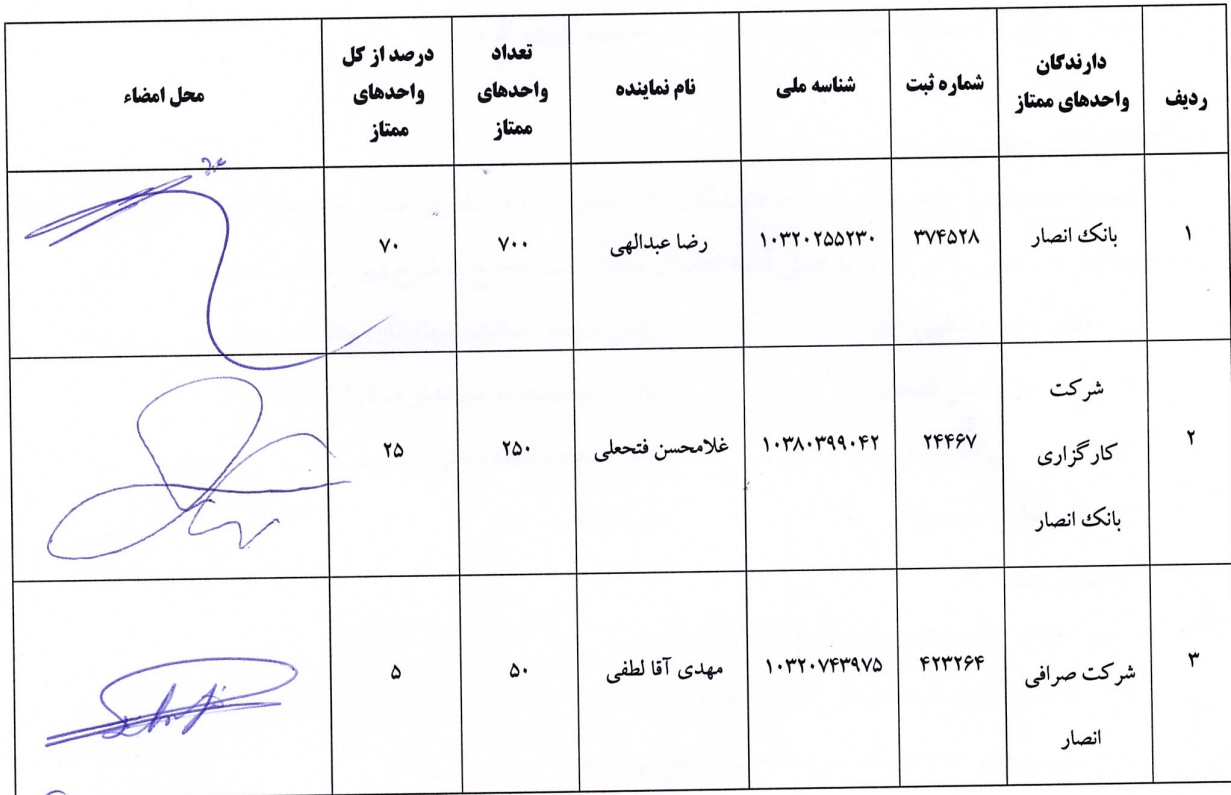 ردیف
دارندگان
واحدهای ممتاز
شماره ثبت
شناسه ملی
نام نماینده
تعداد
واحدهای
ممتاز
درصد از کل
واحدهای
ممتاز
محل امضاء
۱
بانک انصار
۳۷۴۵۲۸
۱۰۳۲۰۲۵۵۲۳۰
رضا عبدالهی
۷۰۰
۷۰
۲
شرکت
کارگزاری
بانک انصار
۲۴۴۶۷
۱۰۳۸۰۳۹۹۰۴۲
غلامحسن فتحعلی
۲۵۰
۲۵
۳
شرکت صرافی
انصار
۴۲۳۲۶۴
۱۰۳۲۰۷۴۳۹۷۵
مهدی آقا لطفی
۵۰
۵